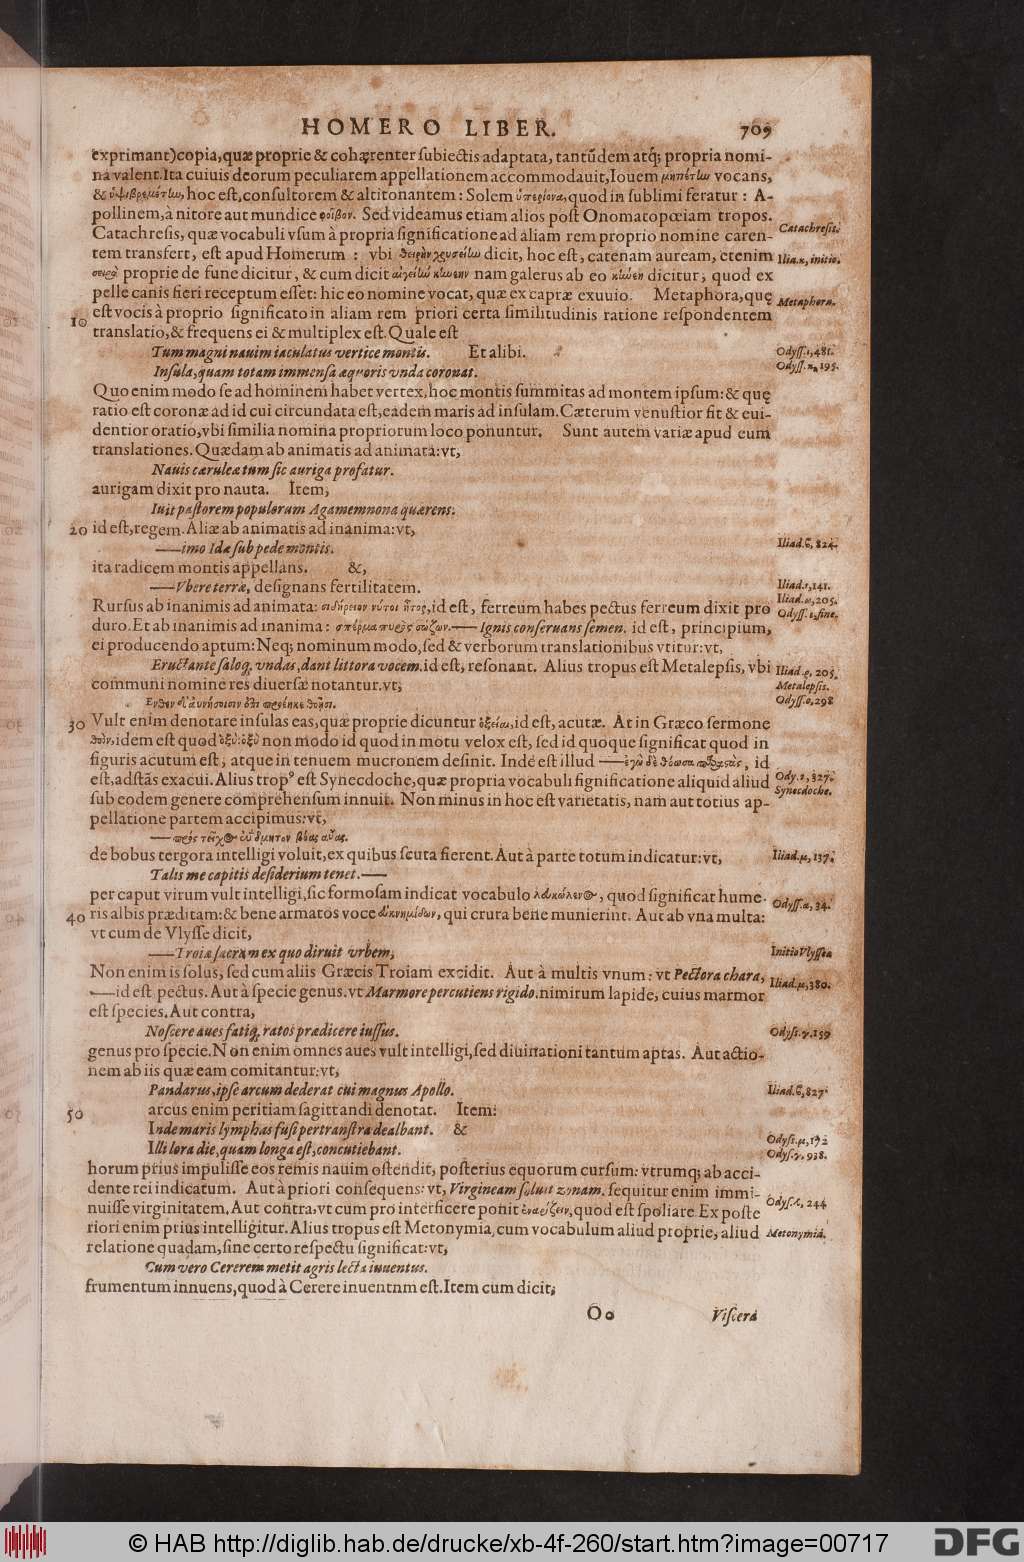 HOMERO LIBER. 709
exprimant)copia,quæ proprie & cohærenter subiectis adaptata, tantũdem atq; propria nomi-
na valent.Ita cuiuis deorum peculiarem appellationem accommodauit,Iouem μητιέτlω vocans,
& ὑψιβρεμέτlω, hoc est,consultorem & altitonantem : Solem ὑπερίονα,quod in sublimi feratur : A-
pollinem,à nitore aut mundice φοῖβον. Sed videamus etiam alios post Onomatopœiam tropos.
Catachresis, quæ vocabuli vsum à propria significatione ad aliam rem proprio nomine caren- Catachresis.
tem transfert, est apud Homerum : vbi dicit, hoc est, catenam auream, etenim Ilia.κ, initio.
σειρὰ proprie de fune dicitur, & cum dicit nam galerus ab eo dicitur, quod ex
pelle canis fieri receptum esset: hic eo nomine vocat, quæ ex capræ exuuio. Metaphora, quę Metaphora.
10 est vocis à proprio significato in aliam rem priori certa similitudinis ratione respondentem
translatio,& frequens ei & multiplex est.Quale est
Tum magni nauim iaculatus vertice montis. Et alibi. Odyss.ι,481.
Insula,quam totam immensa æquoris vnda coronat. Odyss.κ,195.
Quo enim modo se ad hominem habet vertex,hoc montis summitas ad montem ipsum:& quę
ratio est coronæ ad id cui circundata est,eadem maris ad insulam.Cæterum venustior fit & eui-
dentior oratio,vbi similia nomina propriorum loco ponuntur. Sunt autem variæ apud eum
translationes.Quædam ab animatis ad animata:vt,
Nauis cæruleæ tum sic auriga profatur.
aurigam dixit pro nauta. Item,
Iuit pastorem populorum Agamemnona quærens.
20 id est,regem.Aliæ ab animatis ad inanima:vt,
—imo Idæ sub pede montis. Iliad.ϐ, 824.
ita radicem montis appellans. &,
—Vbere terræ, designans fertilitatem. Iliad.ι,141.
Rursus ab inanimis ad animata: σιδήρειον νύτοι ἦτορ,id est, ferreum habes pectus ferreum dixit pro Iliad.ω,205.
duro.Et ab inanimis ad inanima : σπέρμα πυρὸς σώζων.—Ignis conseruans semen. id est, principium, Odyss.ε,fine.
ei producendo aptum:Neq; nominum modo,sed & verborum translationibus vtitur:vt,
Eructante saloq, vndas,dant littora vocem.id est, resonant. Alius tropus est Metalepsis, vbi Iliad.ρ, 265.
communi nomine res diuersæ notantur.vt; Metalepsis.
Ενθεν δ' αὖ νήσοισιν ἐπι προέηκε θοῇσι. Odyss.ο,298
30 Vult enim denotare insulas eas,quæ proprie dicuntur ὀξεῖαι,id est, acutæ. At in Græco sermone
θοὸν,idem est quod ὀξὺ:ὀξὺ non modo id quod in motu velox est, sed id quoque significat quod in
figuris acutum est, atque in tenuem mucronem desinit. Inde est illud —ἐγὼ δὲ θόωσα παραστὰς, id
est,adstãs exacui.Alius tropꝰ est Synecdoche,quæ propria vocabuli significatione aliquid aliud Ody.ι, 327.
sub eodem genere comprehensum innuit. Non minus in hoc est varietatis, nam aut totius ap- Synecdoche.
pellatione partem accipimus:vt,
—πρὸς τεῖχος ἐΰδμητον βόας αὔας.
de bobus tergora intelligi voluit,ex quibus scuta fierent.Aut à parte totum indicatur:vt, Iliad.μ, 137.
Talis me capitis desiderium tenet.—
per caput virum vult intelligi,sic formosam indicat vocabulo λδυκώλενος, quod significat hume- Odyss.α, 34.
40 ris albis præditam:& bene armatos voce ἐϋκνημίδων, qui crura bene munierint. Aut ab vna multa:
vt cum de Vlysse dicit,
—Troiæ sacram ex quo diruit vrbem; Initio Vlysseæ
Non enim is solus, sed cum aliis Græcis Troiam excidit. Aut à multis vnum : vt Pectora chara,
—id est pectus.Aut à specie genus.vt Marmore percutiens rigido.nimirum lapide, cuius marmor Iliad.μ,380.
est species.Aut contra,
Noscere aues fatiq, ratos prædicere iussus. Odyss.γ.159
genus pro specie.Non enim omnes aues vult intelligi,sed diuinationi tantum aptas. Aut actio-
nem ab iis quæ eam comitantur:vt;
Pandarus,ipse arcum dederat cui magnus Apollo. Iliad.ϐ,827.
50 arcus enim peritiam sagittandi denotat. Item:
Inde maris lymphas fusi per transtra dealbant. & Odyss.μ,172
Illi lora die,quam longa est,concutiebant. Odyss.γ.938.
horum prius impulisse eos remis nauim ostendit, posterius equorum cursum: vtrumq; ab acci-
dente rei indicatum. Aut à priori consequens: vt, Virgineam soluit zonam. sequitur enim immi-
nuisse virginitatem.Aut contra,vt cum pro interficere ponit ἐναρίζειν,quod est spoliare.Ex poste Odyss.λ, 244
riori enim prius intelligitur.Alius tropus est Metonymia, cum vocabulum aliud proprie, aliud Metonymia.
relatione quadam,sine certo respectu significat:vt,
Cum vero Cererem metit agris lecta iuuentus.
frumentum innuens,quod à Cerere inuentnm est.Item cum dicit;
Oo Viscera
© HAB http://diglib.hab.de/drucke/xb-4f-260/start.htm?image=00717 DFG